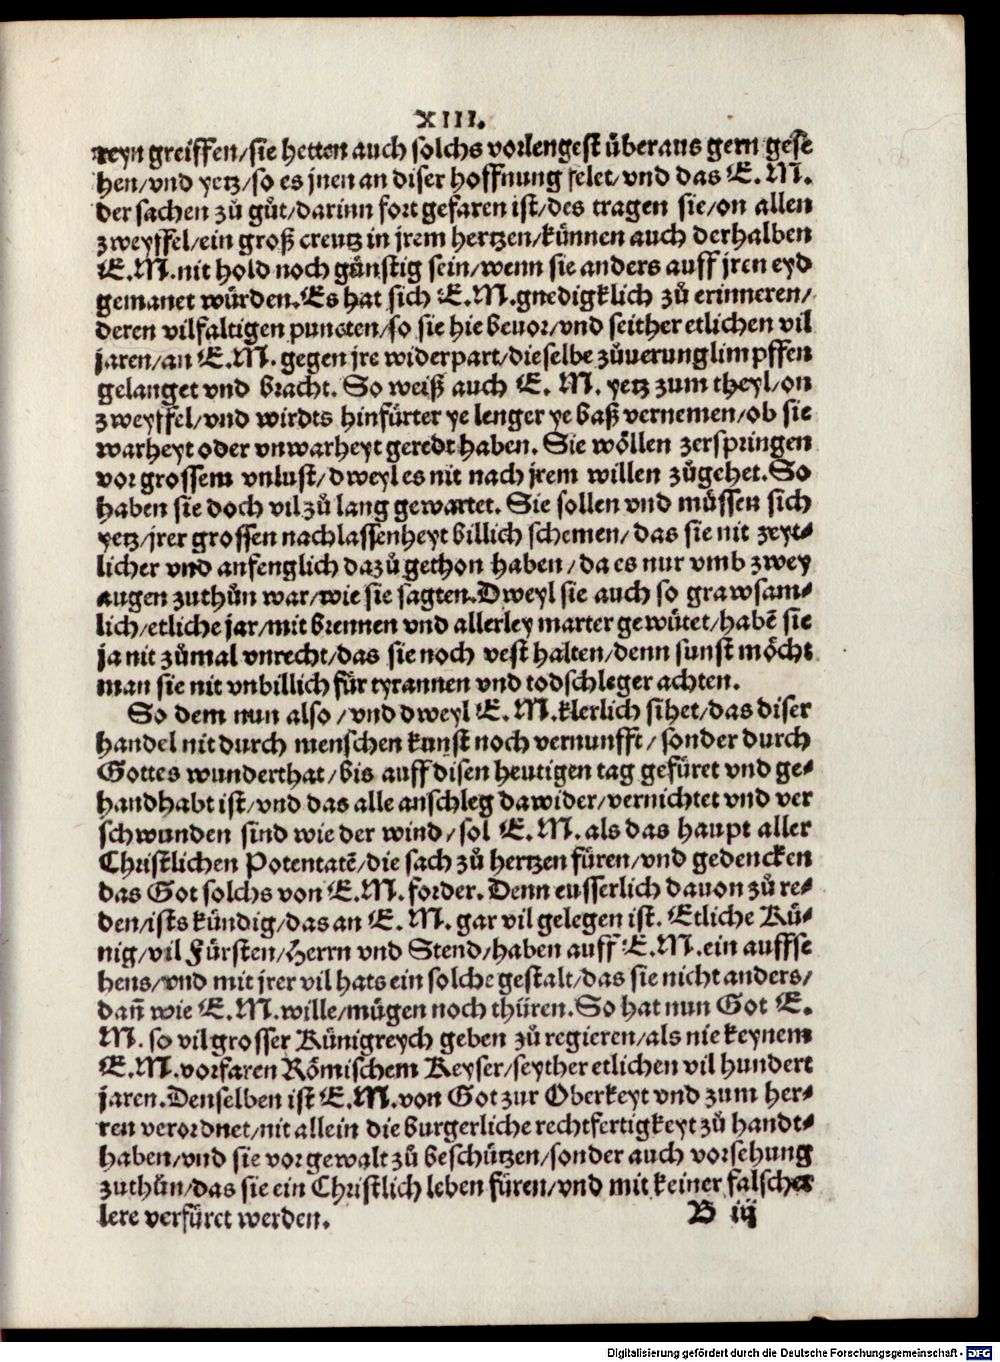 XIII.
reyn greiffen/sie hetten auch solchs vorlengest überaus gern gese
hen/vnd yetz/so es jnen an diser hoffnung felet/vnd das E. M.
der sachen zů gůt/darinn fort gefaren ist/des tragen sie/on allen
zweyffel/ein groß creutz in jrem hertzen/künnen auch derhalben
E.M.nit hold noch günstig sein/wenn sie anders auff jren eyd
gemanet würden.Es hat sich E.M.gnedigklich zů erinneren/
deren vilfaltigen puncten/so sie hie beuor/vnd seither etlichen vil
jaren/an E.M. gegen jre widerpart/dieselbe zůuerunglimpffen
gelanget vnd bracht. So weiß auch E. M. yetz zum theyl/on
zweyffel/vnd wirdts hinfürter ye lenger ye baß vernemen/ob sie
warheyt oder vnwarheyt geredt haben. Sie wöllen zerspringen
vor grossem vnlust/dweyl es nit nach jrem willen zůgehet.So
haben sie doch vil zů lang gewartet. Sie sollen vnd müssen sich
yetz/jrer grossen nachlassenheyt billich schemen/das sie nit zeyt⸗
licher vnd anfenglich dazů gethon haben/da es nur vmb zwey
augen zuthůn war/wie sie sagten.Dweyl sie auch so grawsam⸗
lich/etliche jar/mit brennen vnd allerley marter gewütet/habē sie
ja nit zůmal vnrecht/das sie noch vest halten/denn sunst möcht
man sie nit vnbillich für tyrannen vnd todschleger achten.
So dem nun also/vnd dweyl E.M.klerlich sihet/das diser
handel nit durch menschen kunst noch vernunfft/sonder durch
Gottes wunderthat/bis auff disen heutigen tag gefüret vnd ge⸗
handhabt ist/vnd das alle anschleg dawider/vernichtet vnd ver
schwunden sind wie der wind/sol E.M.als das haupt aller
Christlichen Potentatē/die sach zů hertzen füren/vnd gedencken
das Got solchs von E.M. forder. Denn eusserlich dauon zů re⸗
den/ists kündig/das an E. M. gar vil gelegen ist. Etliche Kü⸗
nig/vil Fürsten/Herrn vnd Stend/haben auff E.M.ein auffse
hens/vnd mit jrer vil hats ein solche gestalt/das sie nicht anders/
dañ wie E.M.wille/mügen noch thüren.So hat nun Got E.
M. so vil grosser Künigreych geben zů regieren/als nie keynem
E.M.vorfaren Römischem Keyser/seyther etlichen vil hundert
jaren.Denselben ist E.M.von Got zur Oberkeyt vnd zum her⸗
ren verordnet/nit allein die burgerliche rechtfertigkeyt zů handt⸗
haben/vnd sie vor gewalt zů beschützen/sonder auch vorsehung
zuthůn/das sie ein Christlich leben füren/vnd mit keiner falscher
lere verfüret werden.
B iij
Digitalisierung gefördert durch die Deutsche Forschungsgemeinschaft - DFG